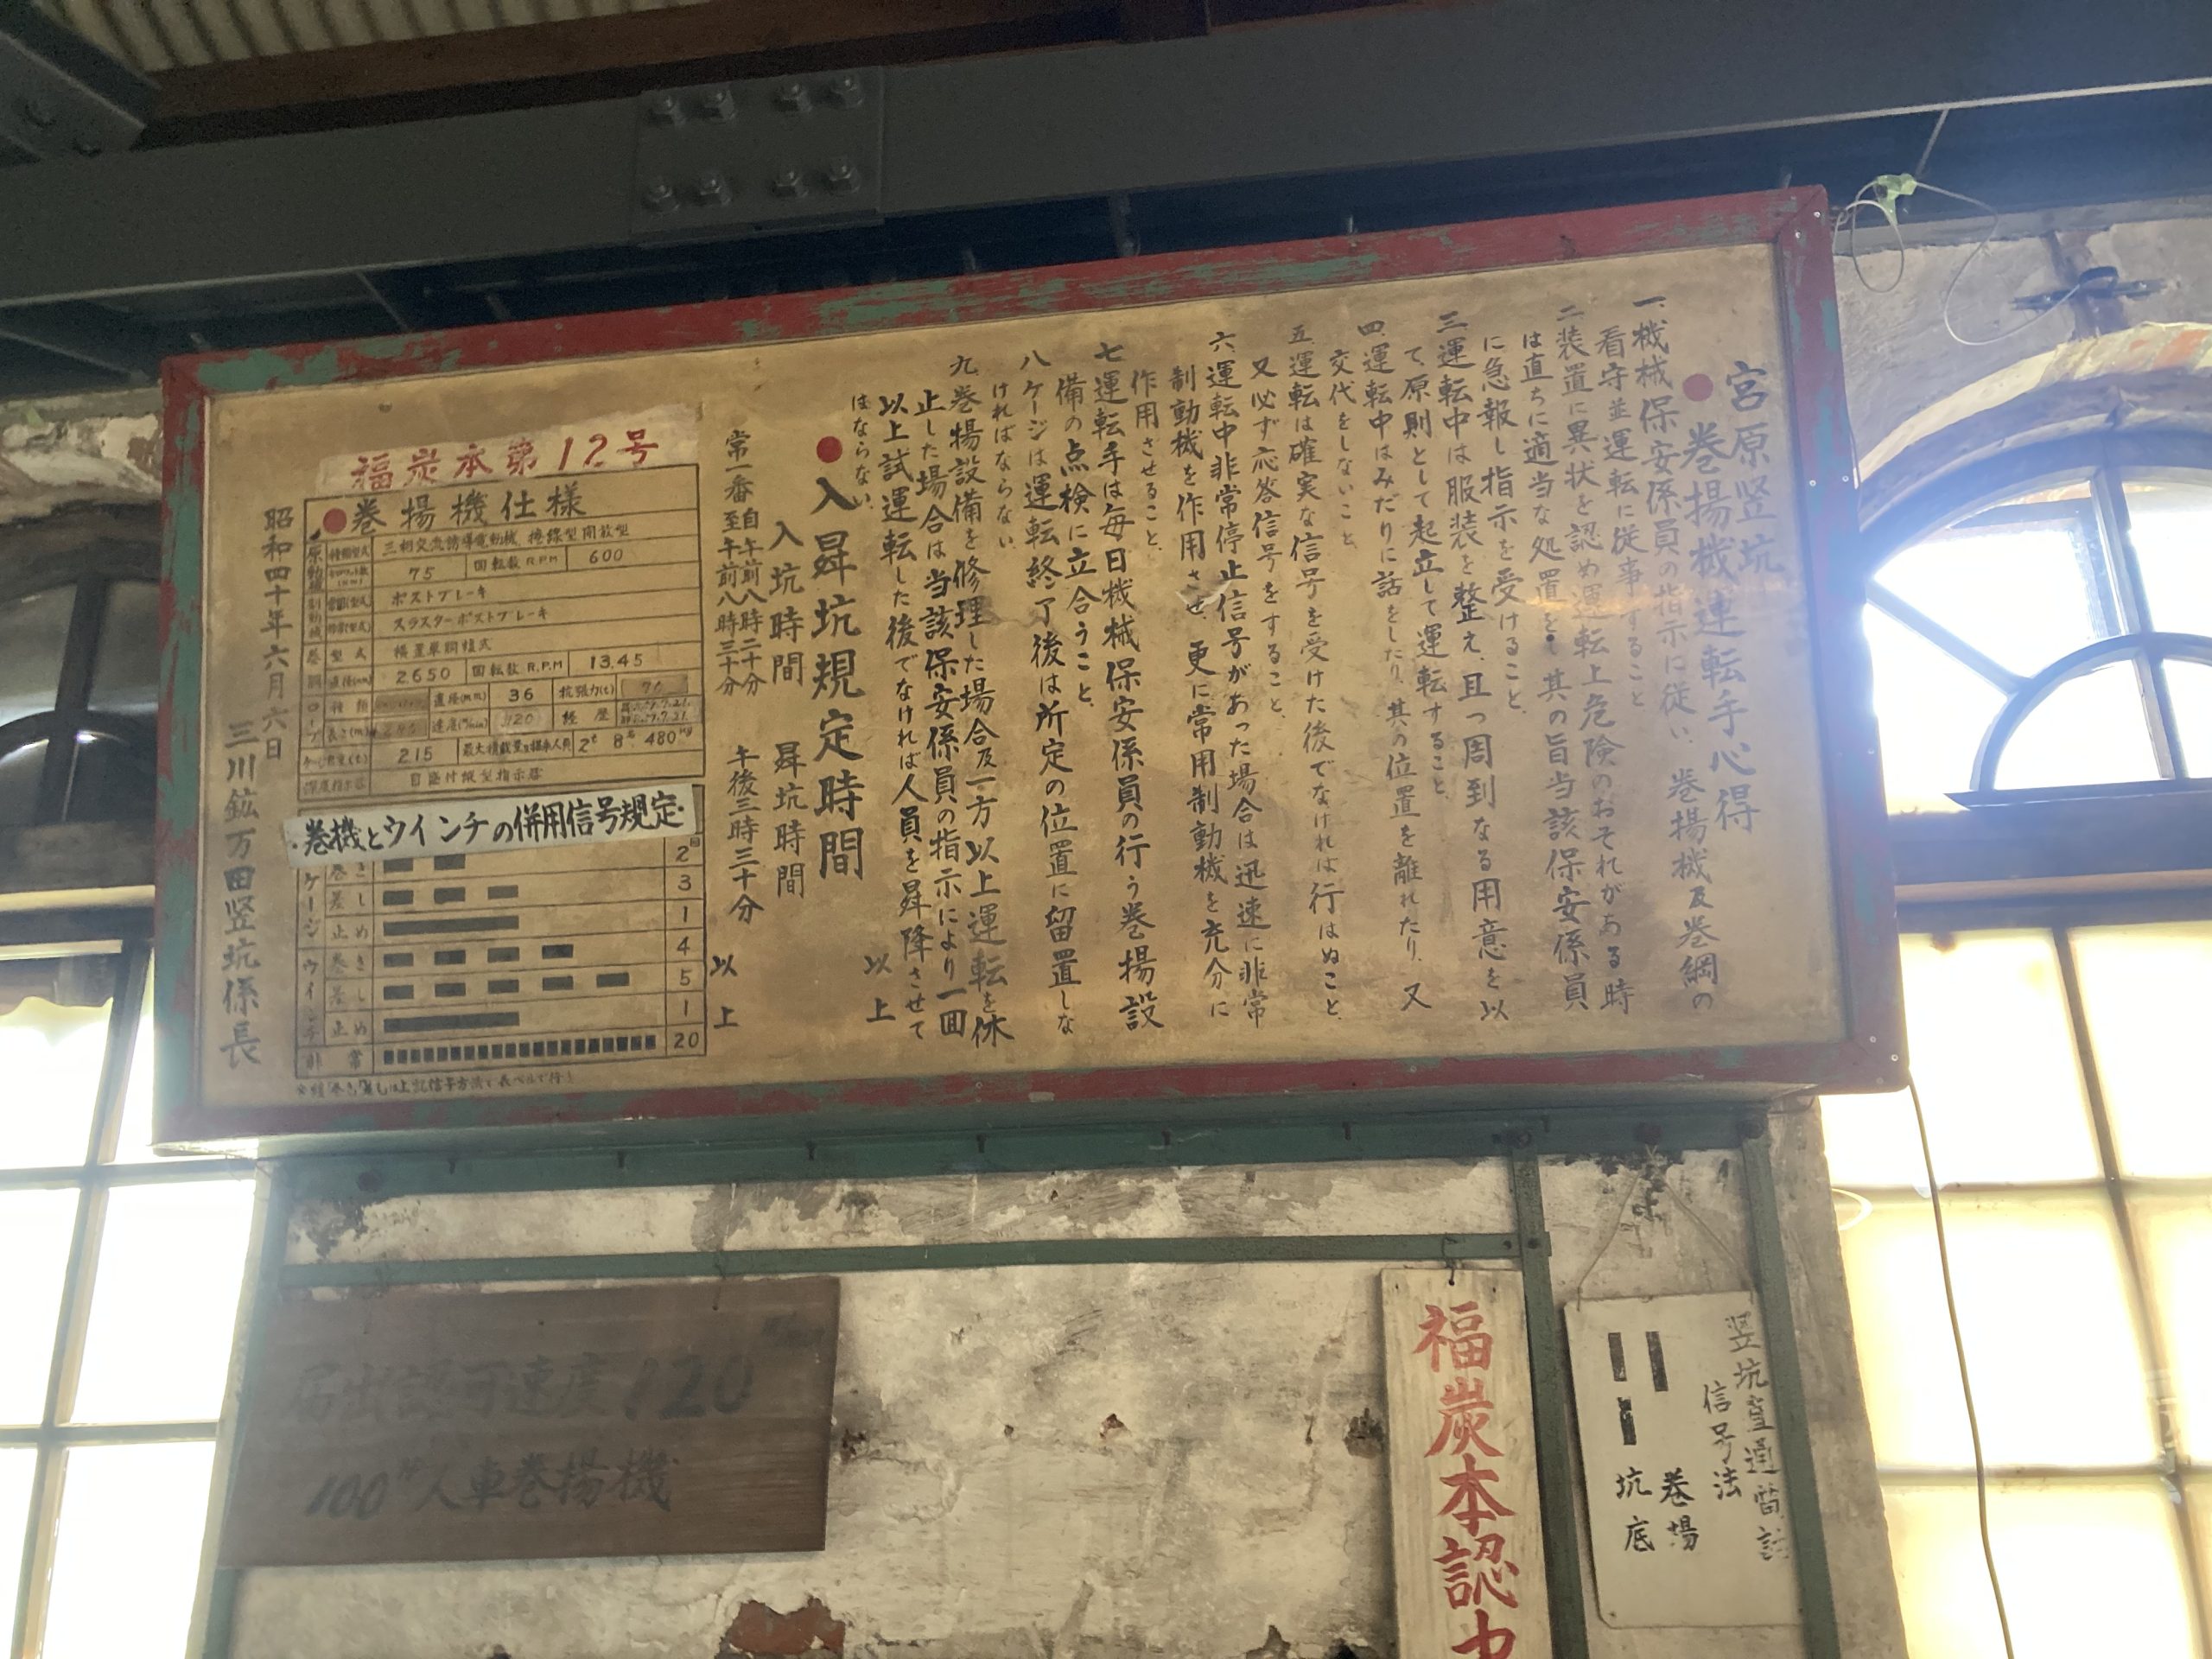 宮原竪坑
●巻揚機運転手心得
一、機械保安係員の指示に従い、巻揚機及巻綱の
看守並運転に従事すること
二、装置に異状を認め運転上危険のおそれがある時
は直ちに適当な処置を●其の旨当該保安係員
に急報し指示を受けること、
三、運転中は服装を整え、且つ周到なる用意を以
て、原則として起立して運転すること、
四、運転中はみだりに話をしたり、其の位置を離れたり、又
交代をしないこと、
五、運転は確実な信号を受けた後でなければ行はぬこと、
又必ず応答信号をすること、
六、運転中非常停止信号があった場合は迅速に非常
制動機を作用させ、更に常用制動機を充分に
作用させること、
七、運転手は毎日機械保安係員の行う巻揚設
備の点検に立合うこと、
八、ケージは運転終了後は所定の位置に留置しな
ければならない、
九、巻揚設備を修理した場合及一方以上運転を休
止した場合は当該保安係員の指示により一回
以上試運転した後でなければ人員を昇降させて
はならない、
以上
●入昇坑規定時間
入坑時間 昇坑時間
常一番 自午前八時二十分 至午前八時三十分 午後三時三十分
以上
福炭本第12号
●巻揚機仕様
原動機 三相交流誘導電動機 捲線型開放型
75 回転数R.P.M 600
制動機 ポストブレーキ
スラスターポストブレーキ
巻胴 型式 横置単胴複式
直径(mm) 2650 回転数R.P.M 13.45
ロープ 種類 直径(mm) 36 抗張力(t)
長さ(m) 速度(m/min) 120 経歴
215 最大積載量及搭乗人員 2t 8名 480kg
深度指示器 目盛付縦型指示器
・巻機とウインチの併用信号規定・
ケージ 巻き 2回
差し 3
止め 1
ウインチ 巻き 4
差し 5
止め 1
非常 20
昭和四十年六月六日
三川鉱万田竪坑係長
届出認可速度120
100HP人車巻揚機
福炭本認力
竪坑直通電話
信号法
巻場
坑底